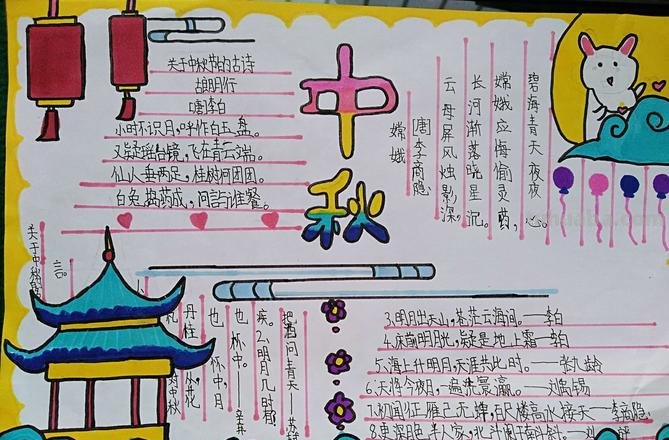 中秋
关于中秋节的古诗
古朗月行
[唐]李白
小时不识月,呼作白玉盘。
又疑瑶台镜,飞在青云端。
仙人垂两足,桂树何团团。
白兔捣药成,问言与谁餐。
嫦娥
[唐]李商隐
云母屏风烛影深,
长河渐落晓星沉。
嫦娥应悔偷灵药,
碧海青天夜夜心。
关于中秋
言。
明月几时有
把酒问青天
3.明月出天山,苍茫云海间。——李白
4.床前明月光,疑是地上霜——李白
5.海上升明月,天涯共此时。——张九龄
6.天将今夜月,一遍洗寰瀛。——刘禹锡
7.初闻征雁已无蝉,百尺楼高水接天——李商隐
8.更深月色半人家,北斗阑干南斗斜——刘